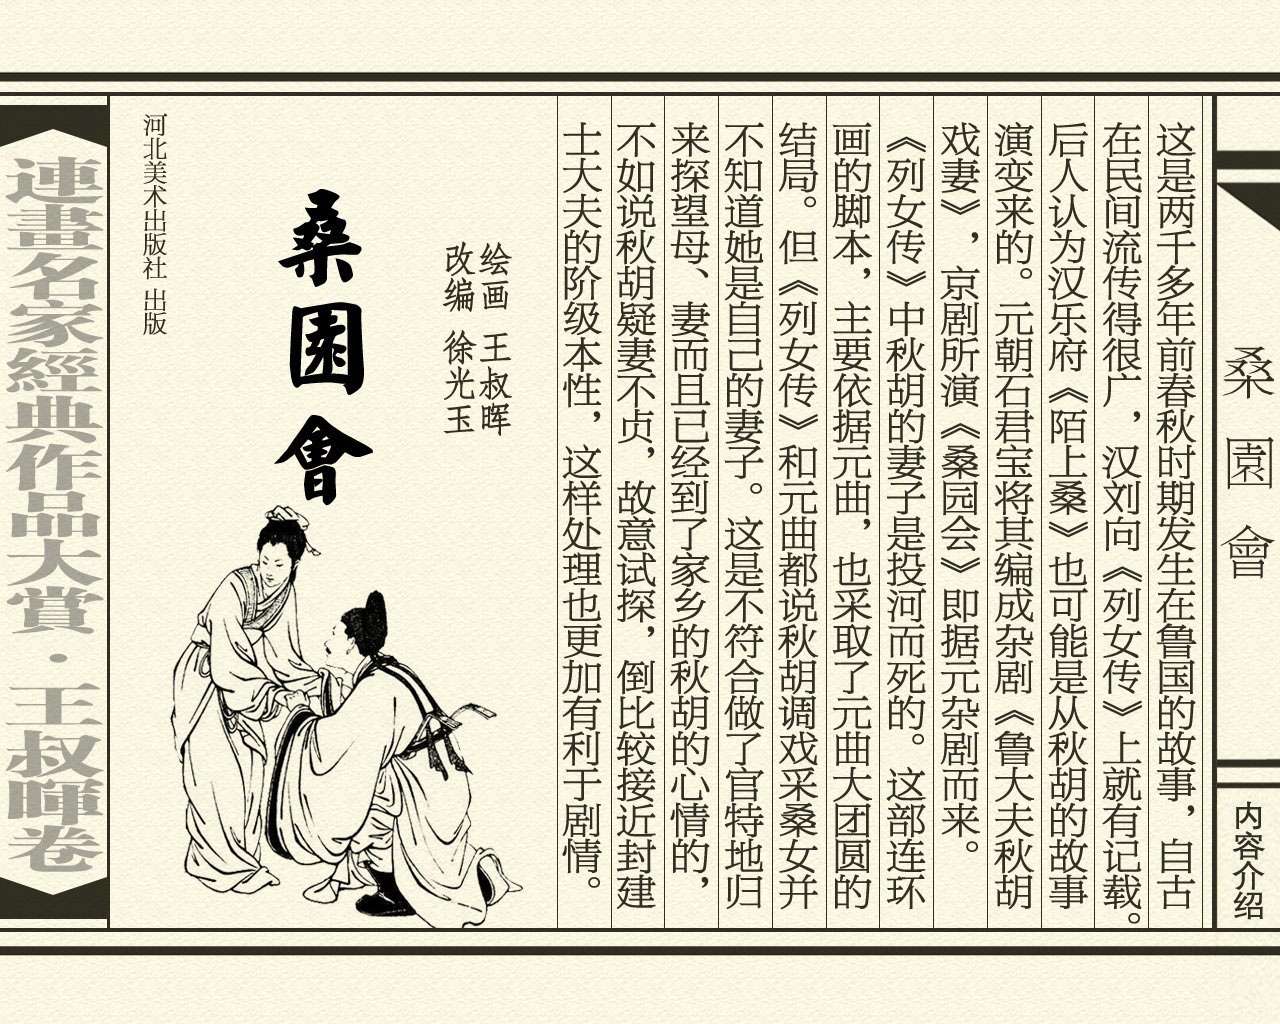 桑園會
内容介绍
这是两千多年前春秋时期发生在鲁国的故事，自古
在民间流传得很广，汉刘向《列女传》上就有记载。
后人认为汉乐府《陌上桑》也可能是从秋胡的故事
演变来的。元朝石君宝将其编成杂剧《鲁大夫秋胡
戏妻》，京剧所演《桑园会》即据元杂剧而来。
《列女传》中秋胡的妻子是投河而死的。这部连环
画的脚本，主要依据元曲，也采取了元曲大团圆的
结局。但《列女传》和元曲都说秋胡调戏采桑女并
不知道她是自己的妻子。这是不符合做了官特地归
来探望母、妻而且已经到了家乡的秋胡的心情的，
不如说秋胡疑妻不贞，故意试探，倒比较接近封建
士大夫的阶级本性，这样处理也更加有利于剧情。
绘画 王叔晖
改编 徐光玉
桑園會
河北美术出版社 出版
連畫名家經典作品大賞·王叔暉卷